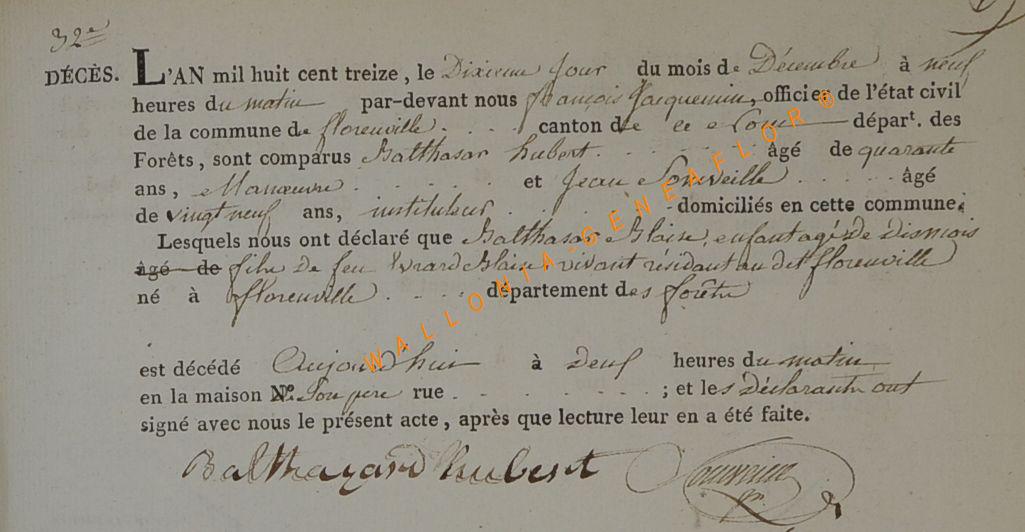 32e
DÉCÈS. L'AN mil huit cent treize, le Dixieme Jour du mois de Décembre à neuf
heures du matin par-devant nous françois Jacquemin, officier de l'état civil
de la commune de florenville . . . . canton de départ. des
Forêts, sont comparus Balthasar hubert . . . . . . . âgé de quarante
ans, Manœuvre . . . . . . et Jean . . . . . âgé
de vingt neuf ans, instituteur . . . . . . . domiciliés en cette commune.
Lesquels nous ont déclaré que Balthasar Blaise, enfant agé de dix mois
âgé de fils de feu Evrard Blaise, vivant résidant au dit florenville
né à florenville . . . . . département des forêts
est décédé Aujourd'hui à heures du matin
en la maison No. Son pere rue . . . . . . . . . ; et les déclarants ont
signé avec nous le présent acte, après que lecture leur en a été faite.
Balthazard hubert
WALLONIA-GENEAFLOR©